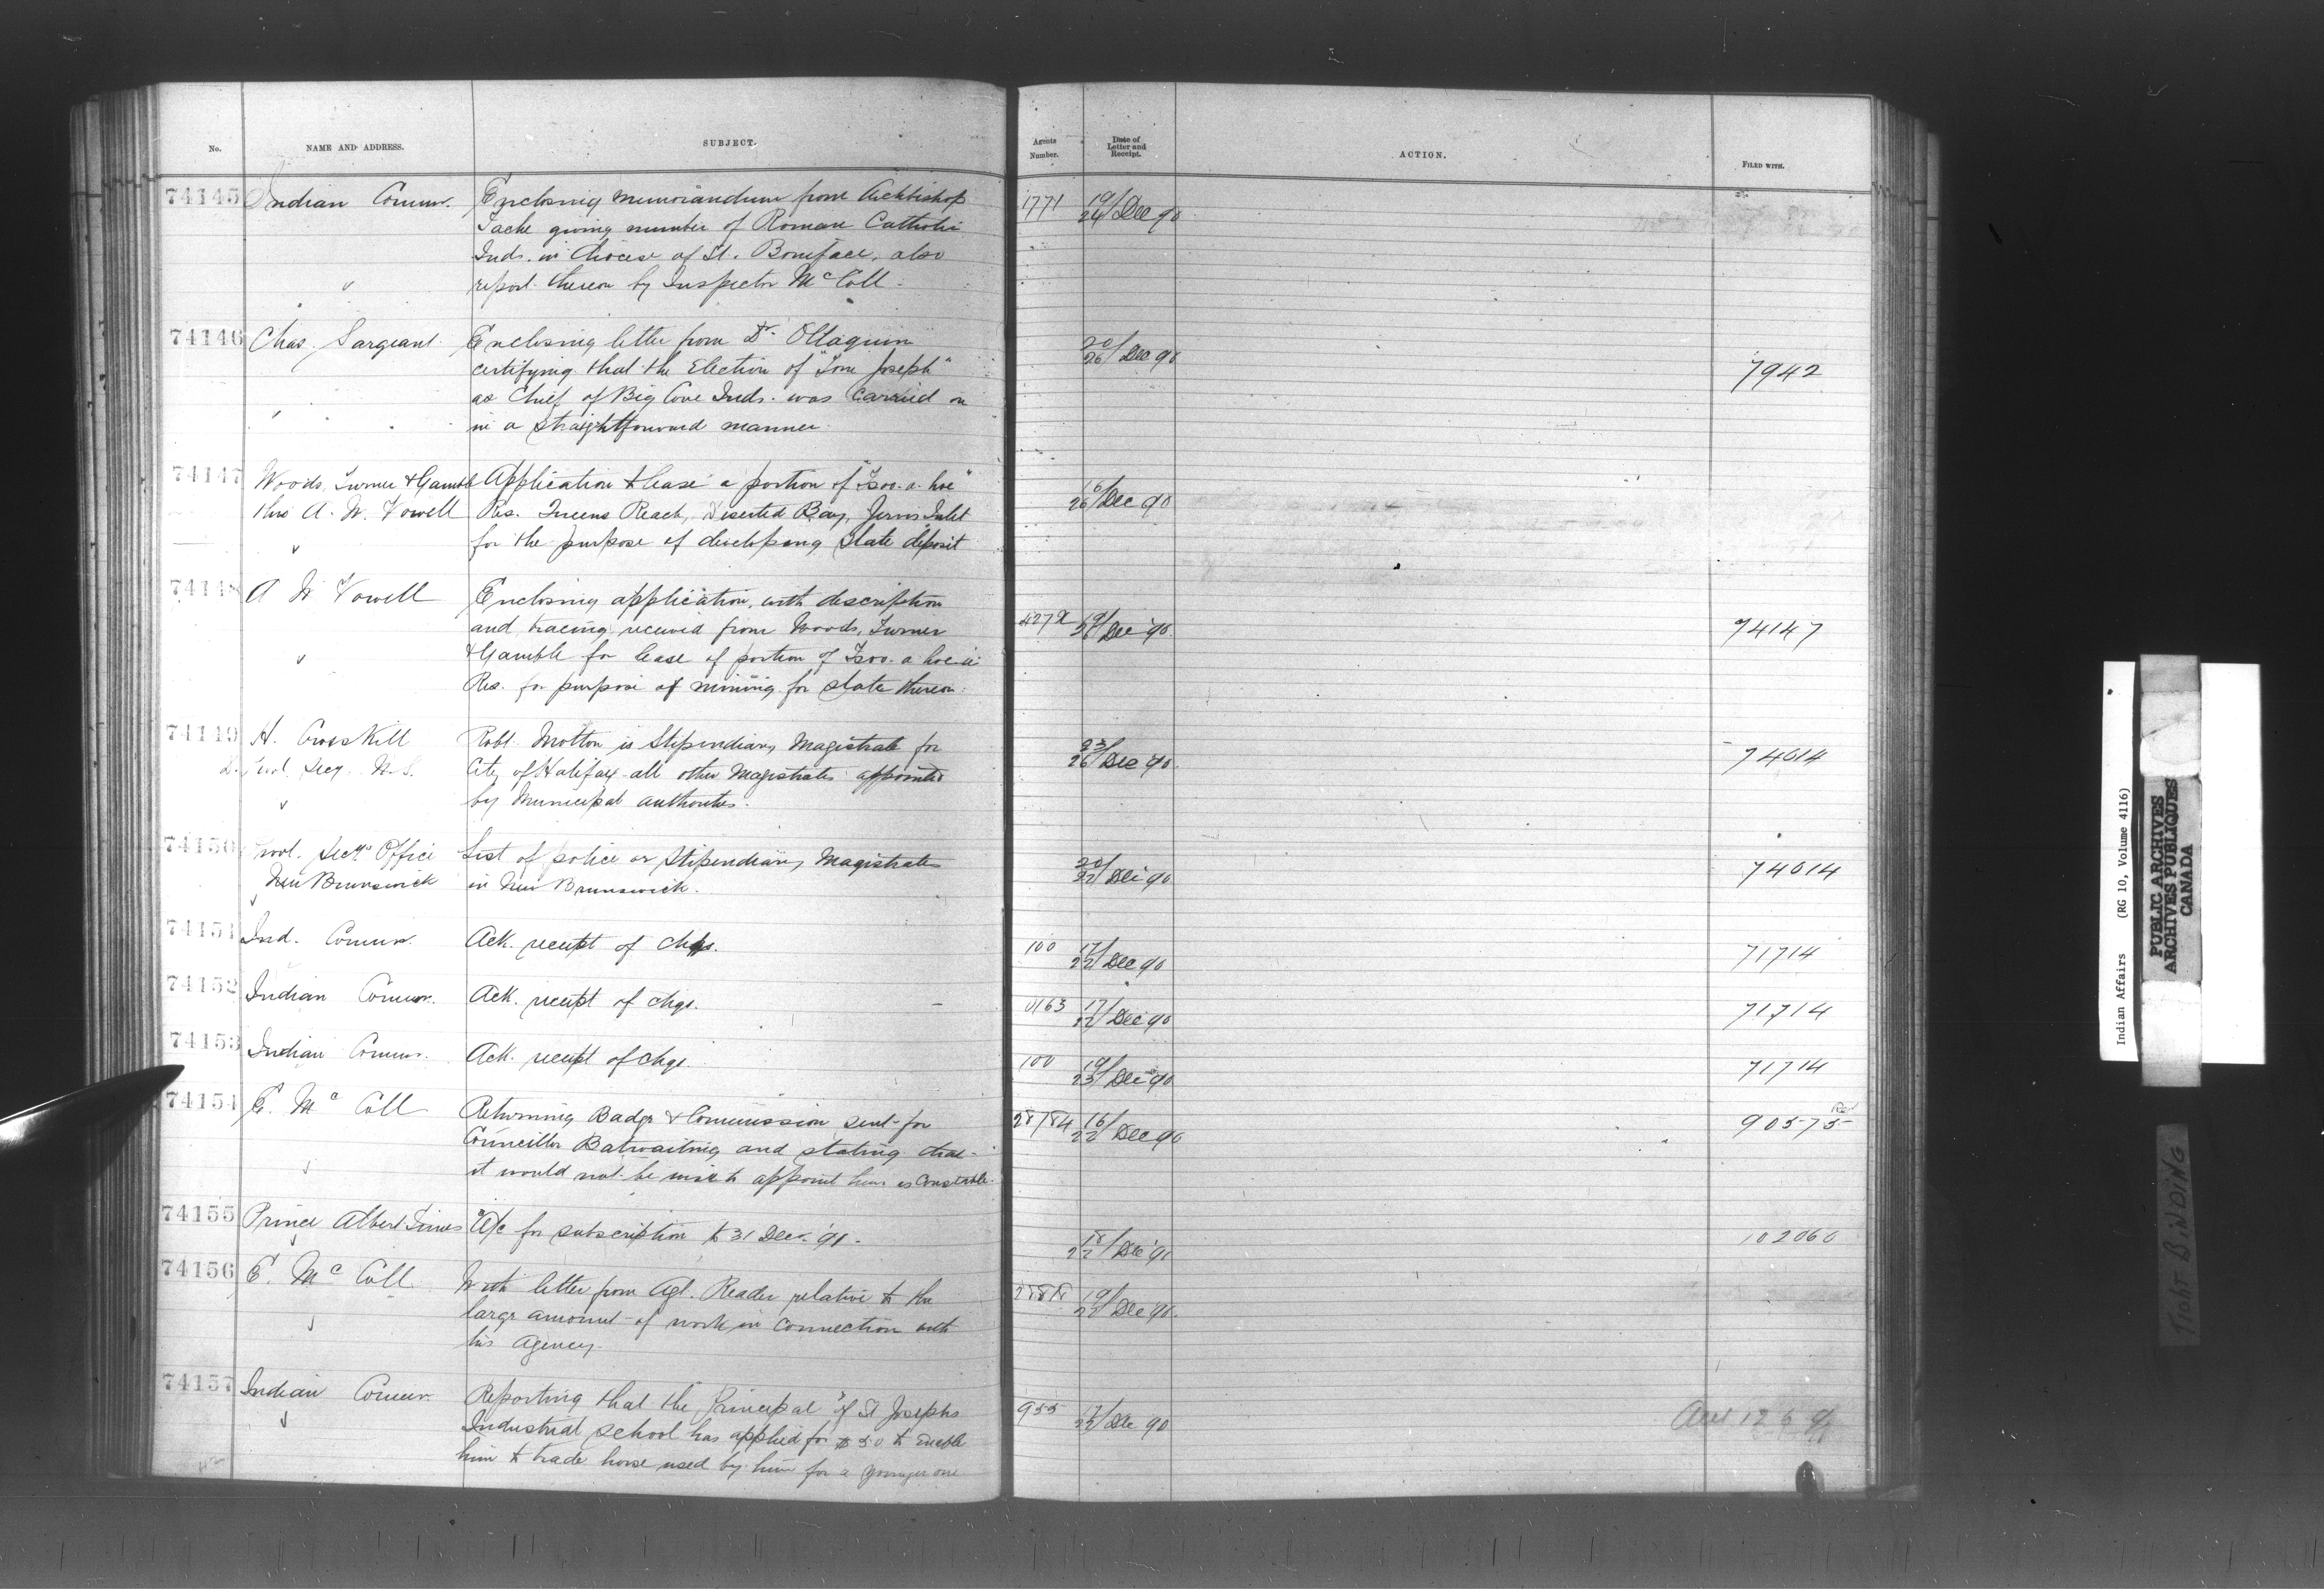 No. NAME AND ADDRESS. SUBJECT. Agents Number. Date of Letter and Receipt. ACTION. FILED WITH.
74145 Indian Commr. Enclosing memorandum from Archbishop 1771 19/24 Dec 90
Tache giving number of Roman Catholic
Inds. in diocese of St. Boniface, also
report thereon by Inspector McColl.
74146 Chas. Sargeant. Enclosing letter from Dr. Olloquin 20/26 Dec 90 7942
certifying that the Election of "Tom Joseph"
as Chief of Big Cove Inds. was carried on
in a straightforward manner.
74147 Woods, Turner & Gamble Application to lease a portion of "Tsoo-a-hoe" 16/26 Dec 90
thro A. W. Vowell Res. Queens Reach, Deserted Bay, Jervis Inlet
for the purpose of developing slate deposit
74148 A W Vowell Enclosing application, with description
and tracing received from Woods, Turner 19/26 Dec '90 74147
& Gamble for lease of portion of Tsoo-a-hoe
Res. for purpose of mining for slate thereon.
74149 H. Crosskill Robt. Motton is Stipendiary Magistrate for 23/26 Dec '90 74014
D. Provl. Secy. N.S. City of Halifax all other Magistrates appointed
by Municipal authorities.
74150 Provl. Secy's Office List of police or Stipendiary Magistrates 20/22 Dec 90 74014
New Brunswick in New Brunswick.
74151 Ind. Commr. Ack. receipt of chqs. 100 17/22 Dec 90 71714
74152 Indian Commr. Ack. receipt of chqs. 0163 17/22 Dec 90 71714
74153 Indian Commr. Ack. receipt of chqs. 100 19/23 Dec '90 71714
74154 E. McColl Returning Badge & Commission sent for 28/84 16/22 Dec 90 90575
Councillor Batwaiting and stating that
it would not be wise to appoint him as Constable.
74155 Prince Albert Times A/c for subscription to 31 Decr. '91. 18/22 Dec '91 102060
74156 E. McColl With letter from Agt. Reader relative to the 19/22 Dec '90
large amount of work in connection with
his agency.
74157 Indian Commr. Reporting that the Principal of St Josephs 955 17/22 Dec 90
Industrial school has applied for $50 to enable
him to trade horse used by him for a younger one
Indian Affairs (RG 10, Volume 4116)
PUBLIC ARCHIVES
ARCHIVES PUBLIQUES
CANADA
TIGHT BINDING